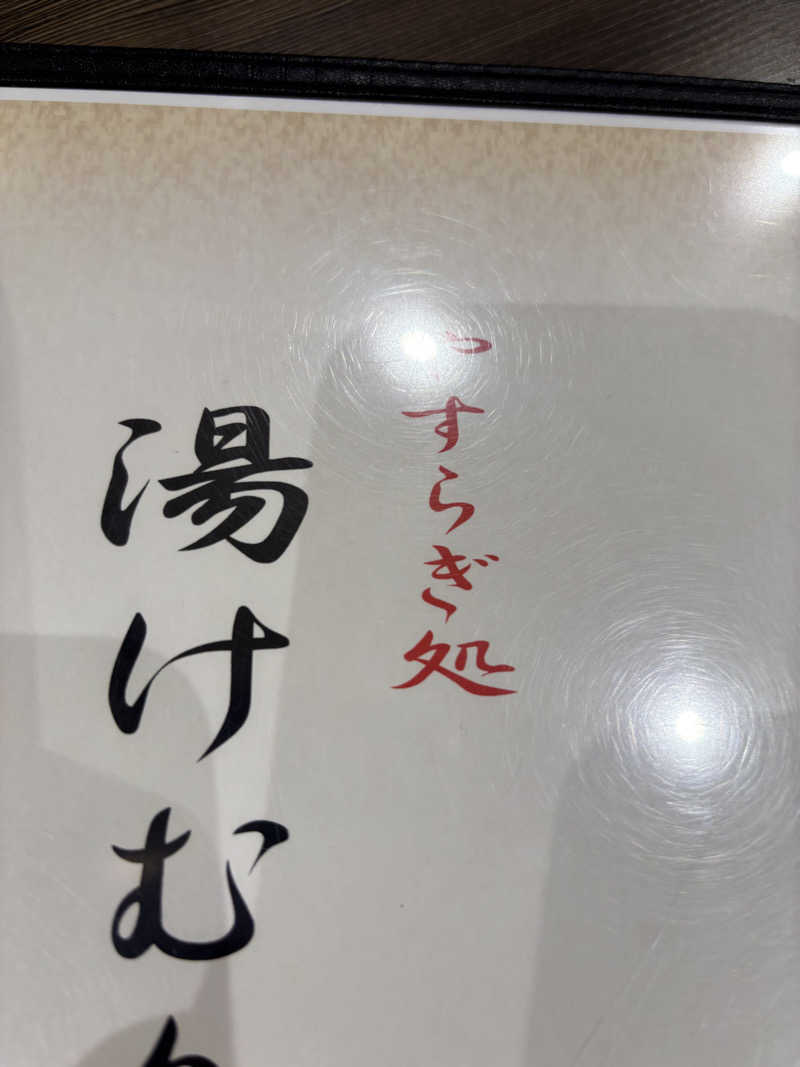 やすらぎ処
湯けむ